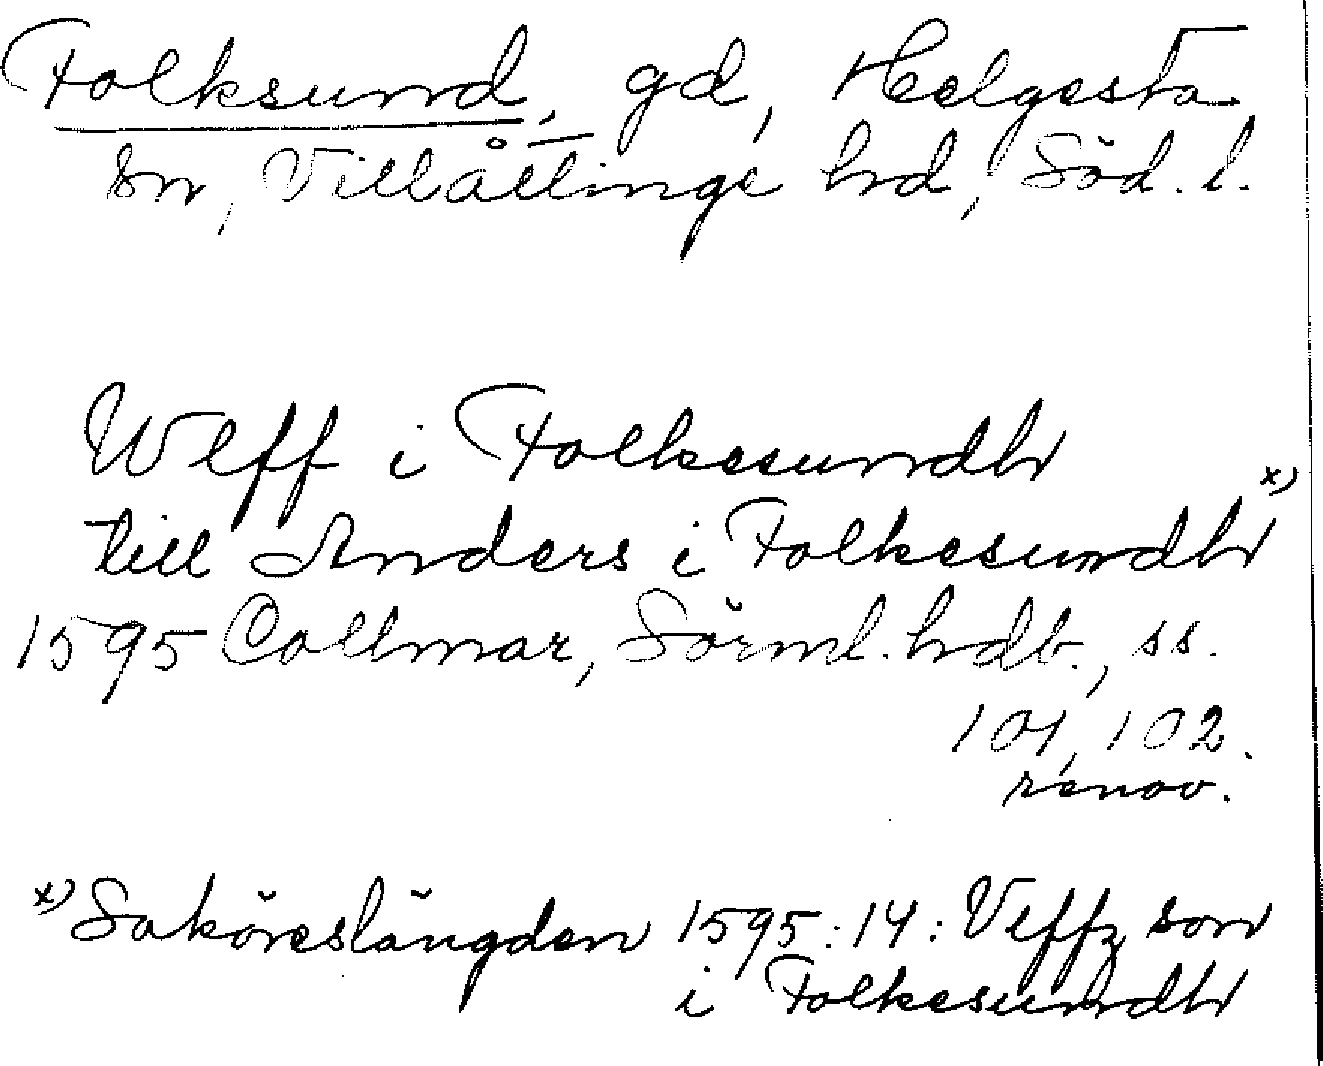 Folksund, gd, Helgesta
sn, Villåttinge hd, Söd. l.
Wlff i Folkesundh
till Anders i Folkesundh x)
1595 Collmar, Sörml. hdb., ss.
101, 102.
renov.
x) Saköreslängden 1595:14: Vlffz son
i Folkesundh